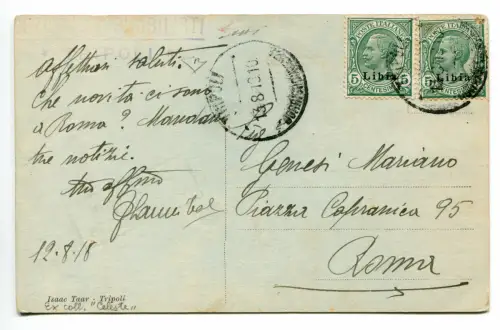 Affettuosi saluti.
Che novità ci sono
a Roma? Mandami
tue notizie.
tuo affmo
12-8-18
Genesi Mariano
Piazza Capranica 95
Roma
TRIPOLI
13.8.18.10
POSTE ITALIANE
Libia
5 CENTESIMI 5
POSTE ITALIANE
Libia
5 CENTESIMI
Isaac Taar - Tripoli
ex coll. "Celeste"